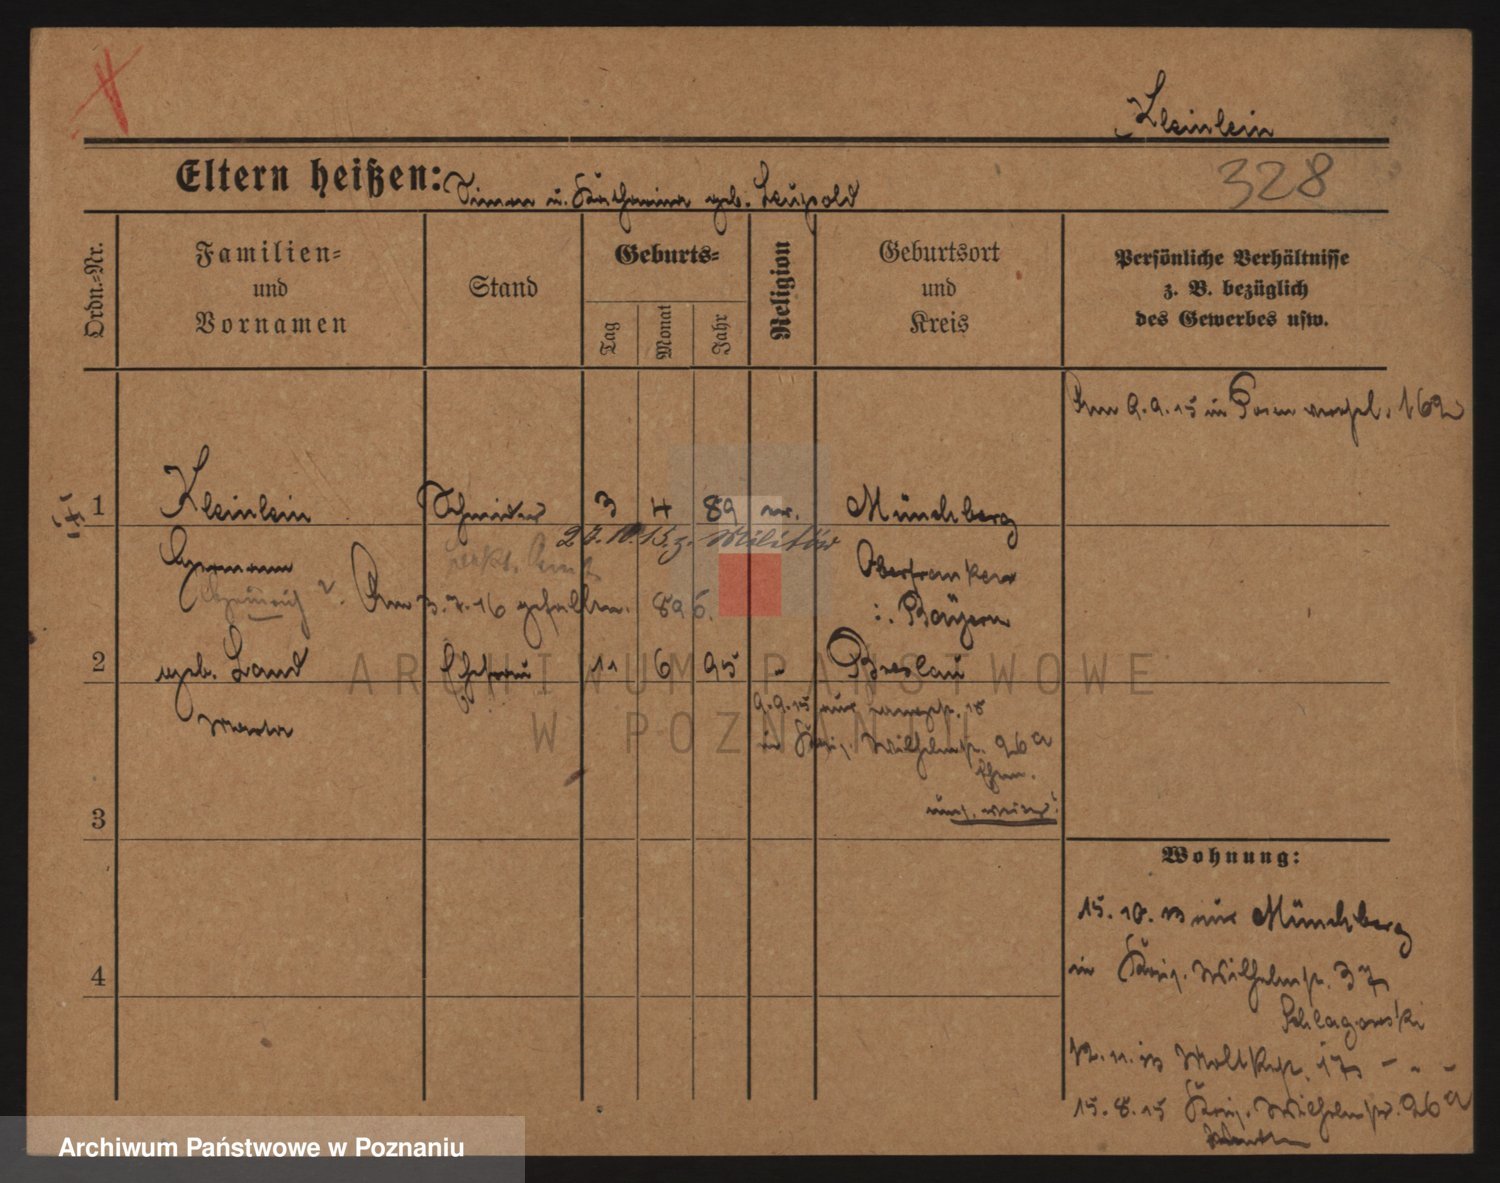 Kleinlein
328
Eltern heißen: Simon u. Katharina geb. Leupold
Ordn.-Nr.
Familien-
und
Vornamen
Stand
Geburts-
Tag
Monat
Jahr
Religion
Geburtsort
und
Kreis
Persönliche Verhältnisse
z. B. bezüglich
des Gewerbes usw.
Am 9.9.15 in Posen
1 Kleinlein Schneider 3 4 89 Münchberg
z. Militär
Hermann Oberfranken
Heinrich Am 3.7.16 gefallen. 896. i. Bayern
2 geb. Land Ehefrau 11 6 95 Breslau
Marta
9.9.15 aus
in König. Wilhelmstr. 26a
3
Wohnung:
15.10.13 aus Münchberg
in König. Wilhelmstr. 37
4
12.11.13 Moltkestr. 17
15.8.15 König. Wilhelmstr. 26a
ARCHIWUM PAŃSTWOWE
W POZNANIU
Archiwum Państwowe w Poznaniu